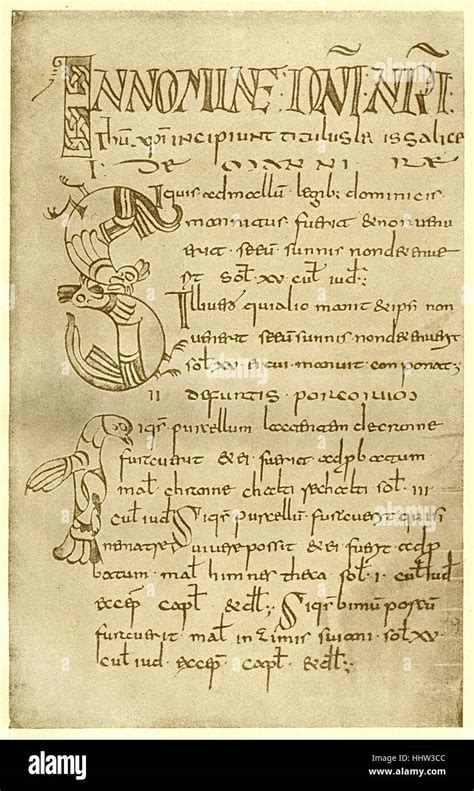 IN NOMINE : DÑI : NR̃I :
ihu xp̃i incipiunt titulus legis salice
I · DE MANNIRE
Siquis ad mallū legib; dominicis
mannitus fuerit & non uene
rit · si eū sunnis non detenue
rit sol̃ · xv cul̃ iud̃ ·
Ille uero qui alio manit & ipsi non
uenerit si eū sunnis non detenuerit
sol̃ xv ei cui manuit conponat ;
II defurtis porcorum
Siqis purcellum lactantem decranne
furauerit & ei fuerit adp̃batum
mal̃ chranne sol̃ · III
cul̃ iud Siqis purcellū furauerit qui si
ne matre uiuere possit & ei fuerit adp̃
batum · mal̃ himnes theca sol̃ · I · cul̃ iud̃
excep̃ · capl̃ · & dl̃ ; Siqis bimū porcū
furauerit mal̃ sol̃ XV ·
cul̃ iud · excep̃ · capl̃ · & dl̃ ;
alamy
Image ID: HHW3CC
www.alamy.com